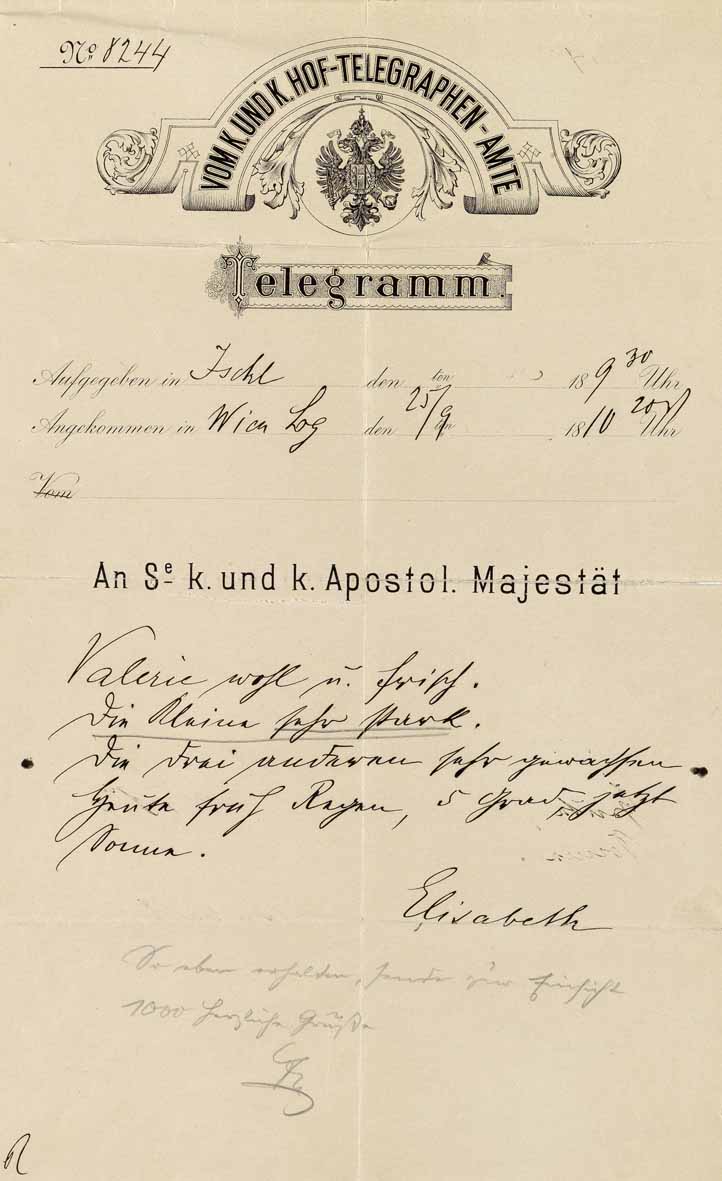 No 8244
VOM K. UND K. HOF-TELEGRAPHEN-AMTE
Telegramm.
Aufgegeben in Ischl den ten 18 9 30 Uhr
Angekommen in Wien den 25/9 ten 18 10 20 Uhr
Vom
An Se k. und k. Apostol. Majestät
Valerie wohl u. frisch.
Die Kleine sehr stark.
Die drei anderen sehr gewachsen
Heute früh Regen, 5 Grad, jetzt
Sonne.
Elisabeth
So eben erhalten, sende zur Einsicht
1000 herzliche Grüße